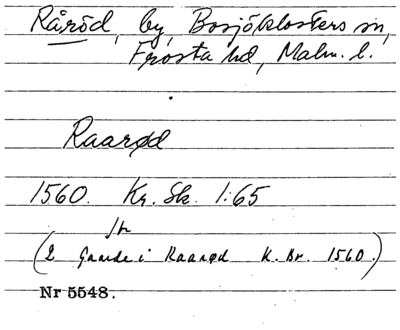 Råröd, by, Bosjöklosters sn,
Frosta hd, Malm. l.
Raarød
1560. Kr. Sk. 1:65
(2 Gaarde i Raarød K. Br. 1560.)
Nr 5548.